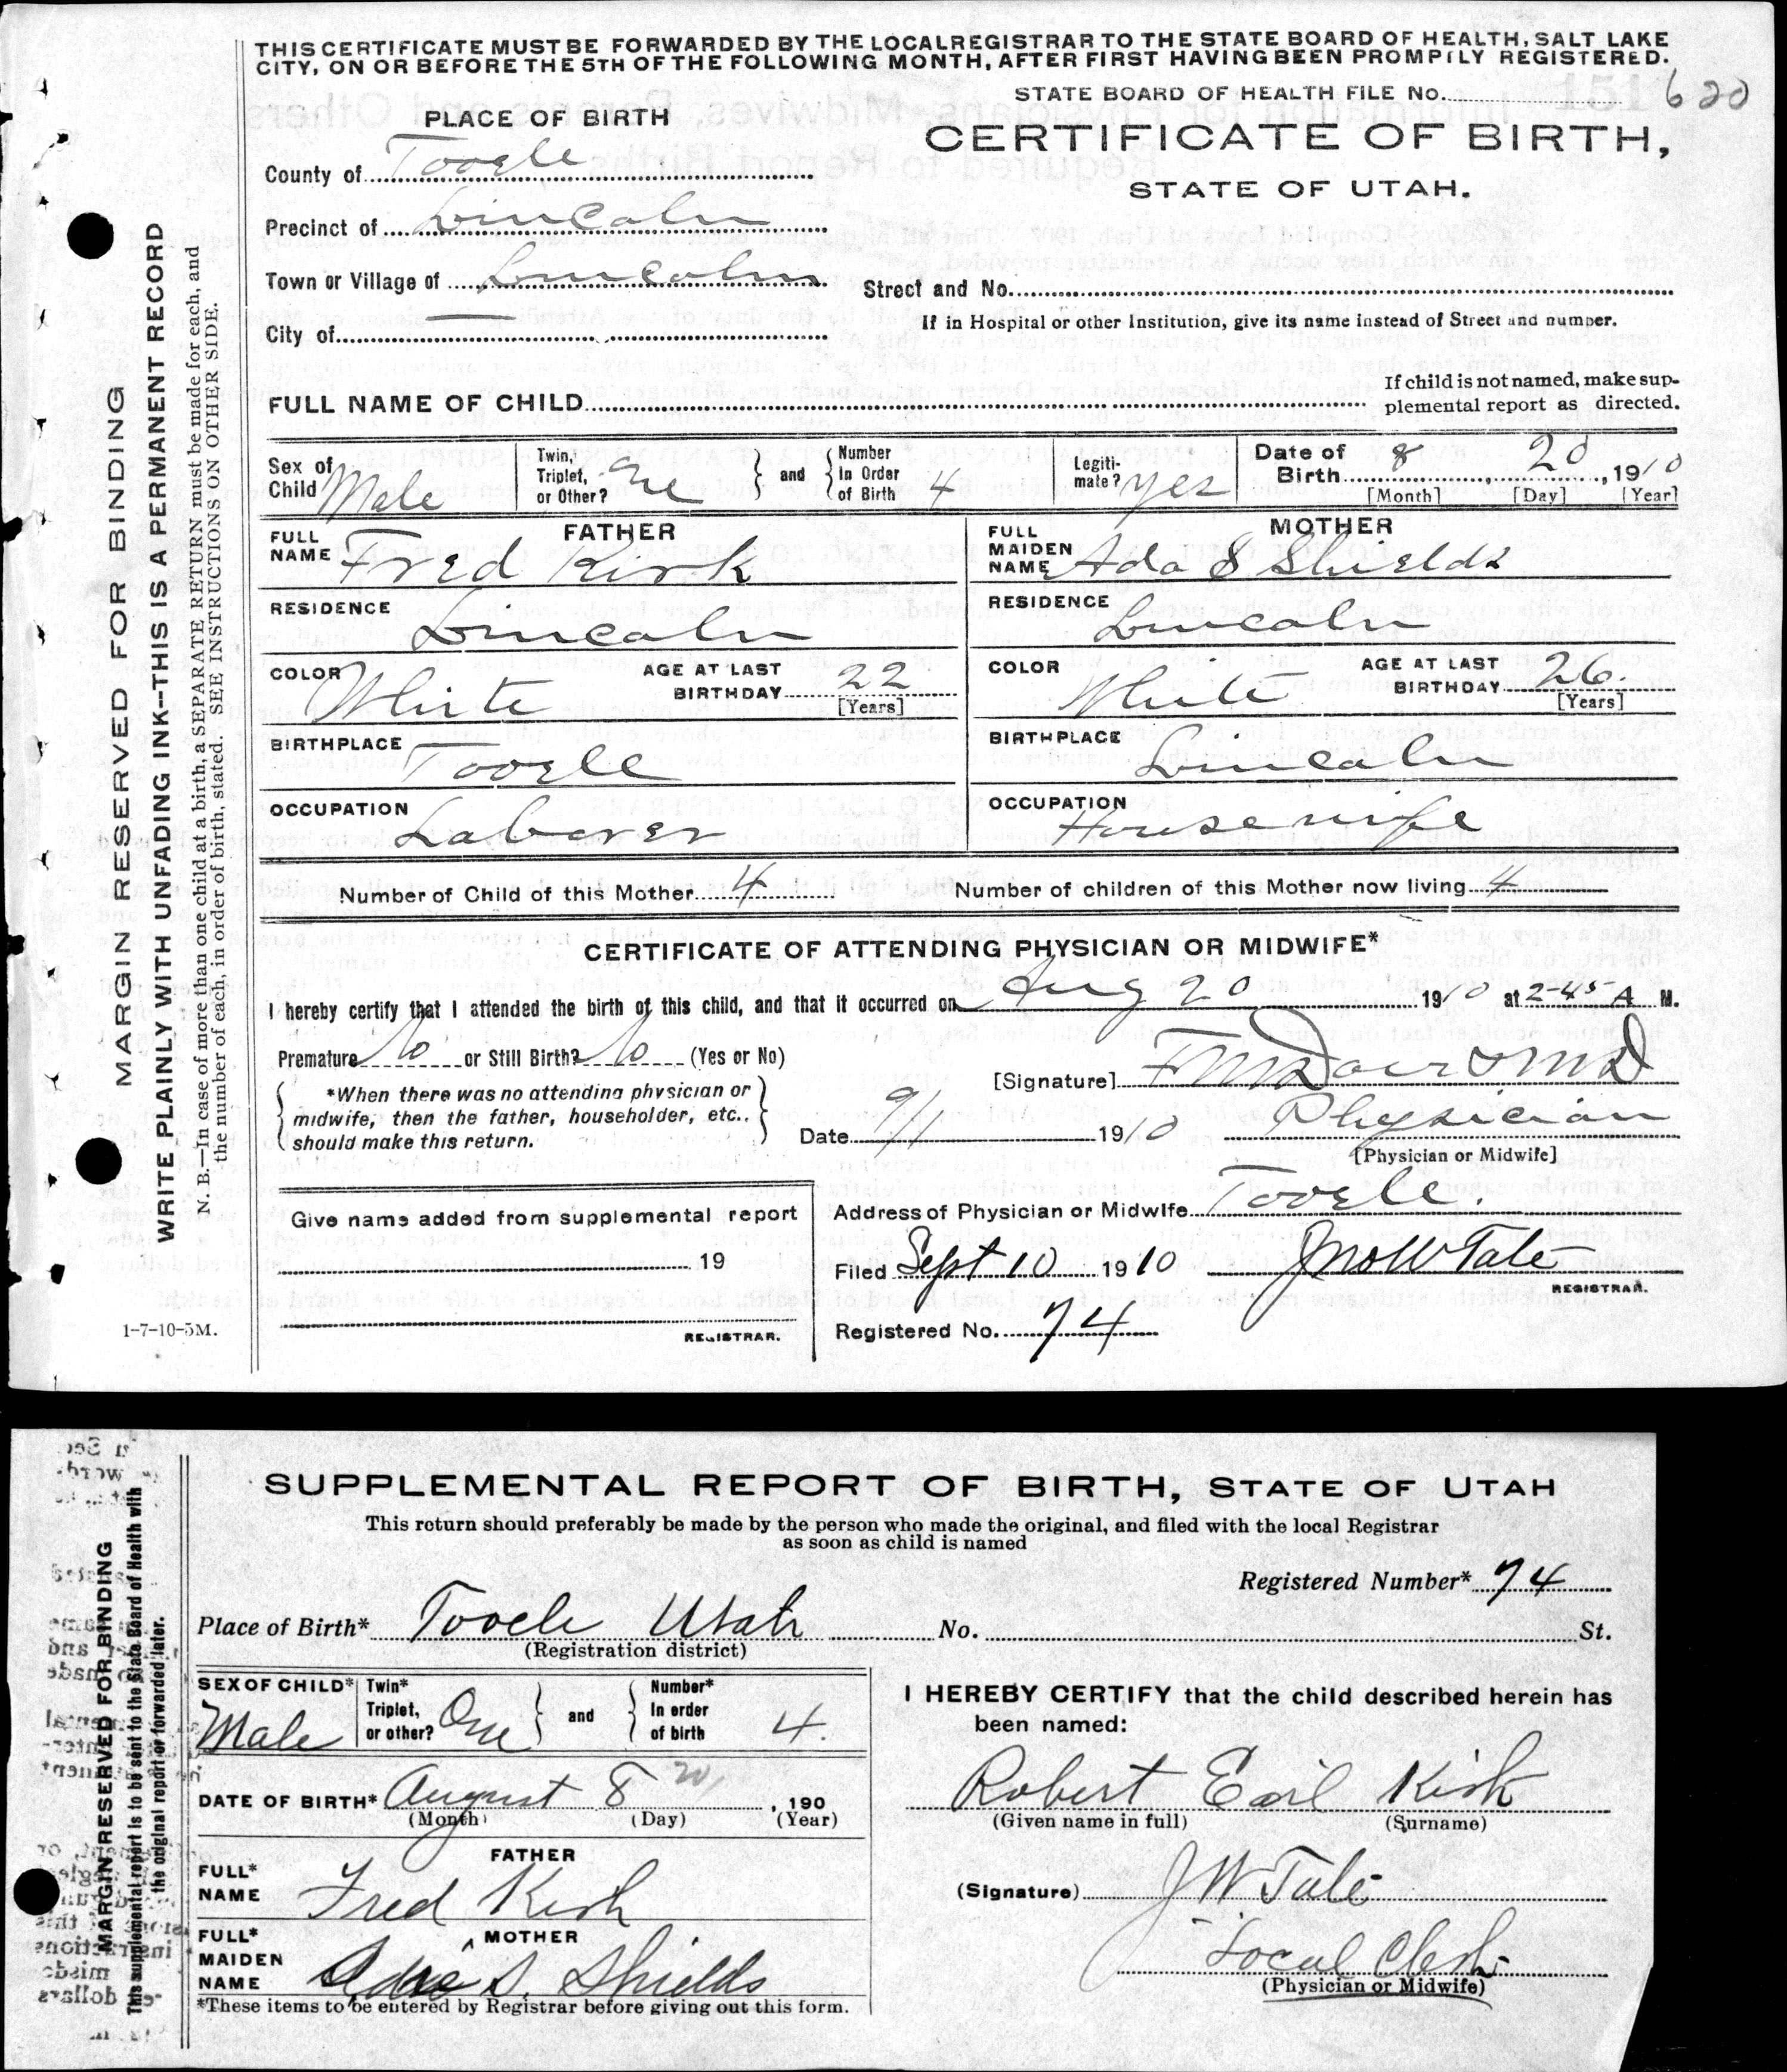 THIS CERTIFICATE MUST BE FORWARDED BY THE LOCAL REGISTRAR TO THE STATE BOARD OF HEALTH, SALT LAKE
CITY, ON OR BEFORE THE 5TH OF THE FOLLOWING MONTH, AFTER FIRST HAVING BEEN PROMPTLY REGISTERED.
STATE BOARD OF HEALTH FILE No. 151 620
PLACE OF BIRTH
CERTIFICATE OF BIRTH,
STATE OF UTAH.
County of Tooele
Precinct of Lincoln
Town or Village of Lincoln
Street and No.
If in Hospital or other Institution, give its name instead of Street and number.
City of
FULL NAME OF CHILD
If child is not named, make sup-
plemental report as directed.
Sex of Child Male
Twin, Triplet, or Other? One
and
Number in Order of Birth 4
Legiti-mate? Yes
Date of Birth 8 20, 1910
[Month] [Day] [Year]
FATHER
FULL NAME Fred Kirk
RESIDENCE Lincoln
COLOR White AGE AT LAST BIRTHDAY 22
[Years]
BIRTHPLACE Tooele
OCCUPATION Laborer
MOTHER
FULL MAIDEN NAME Ada S Shields
RESIDENCE Lincoln
COLOR White AGE AT LAST BIRTHDAY 26.
[Years]
BIRTHPLACE Lincoln
OCCUPATION Housewife
Number of Child of this Mother 4 Number of children of this Mother now living 4
CERTIFICATE OF ATTENDING PHYSICIAN OR MIDWIFE*
I hereby certify that I attended the birth of this child, and that it occurred on Aug 20 1910 at 2-45 A M.
Premature No or Still Birth? No (Yes or No)
*When there was no attending physician or
midwife, then the father, householder, etc.,
should make this return.
[Signature] MD
Date 9/1 1910 Physician
[Physician or Midwife]
Address of Physician or Midwife Tooele.
Give name added from supplemental report
19
REGISTRAR.
Filed Sept 10 1910 Jno W Tate
REGISTRAR.
Registered No. 74
1-7-10-5M.
MARGIN RESERVED FOR BINDING
WRITE PLAINLY WITH UNFADING INK--THIS IS A PERMANENT RECORD
N. B.—In case of more than one child at a birth, a SEPARATE RETURN must be made for each, and
the number of each, in order of birth, stated. SEE INSTRUCTIONS ON OTHER SIDE.
SUPPLEMENTAL REPORT OF BIRTH, STATE OF UTAH
This return should preferably be made by the person who made the original, and filed with the local Registrar
as soon as child is named
Registered Number* 74
Place of Birth* Tooele Utah No. St.
(Registration district)
SEX OF CHILD* Male
Twin* Triplet, or other? One
and
Number* In order of birth 4.
DATE OF BIRTH* August 8 20, 190
(Month) (Day) (Year)
FATHER
FULL* NAME Fred Kirk
MOTHER
FULL* MAIDEN NAME Ada S. Shields
*These items to be entered by Registrar before giving out this form.
I HEREBY CERTIFY that the child described herein has
been named:
Robert Earl Kirk
(Given name in full) (Surname)
(Signature) J W Tate
Local Clerk
(Physician or Midwife)
MARGIN RESERVED FOR BINDING
This supplemental report is to be sent to the State Board of Health with
the original report or forwarded later.